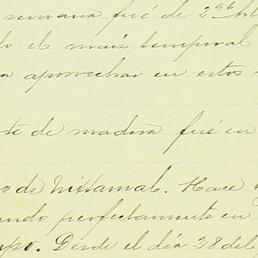 semana fué de 29 qts
lo el maiz temporal
a aprovechar en estos
te de madera fué en
o de Nixtamal. Hace
ando perfectamente en
mpo. Desde el día 28 del